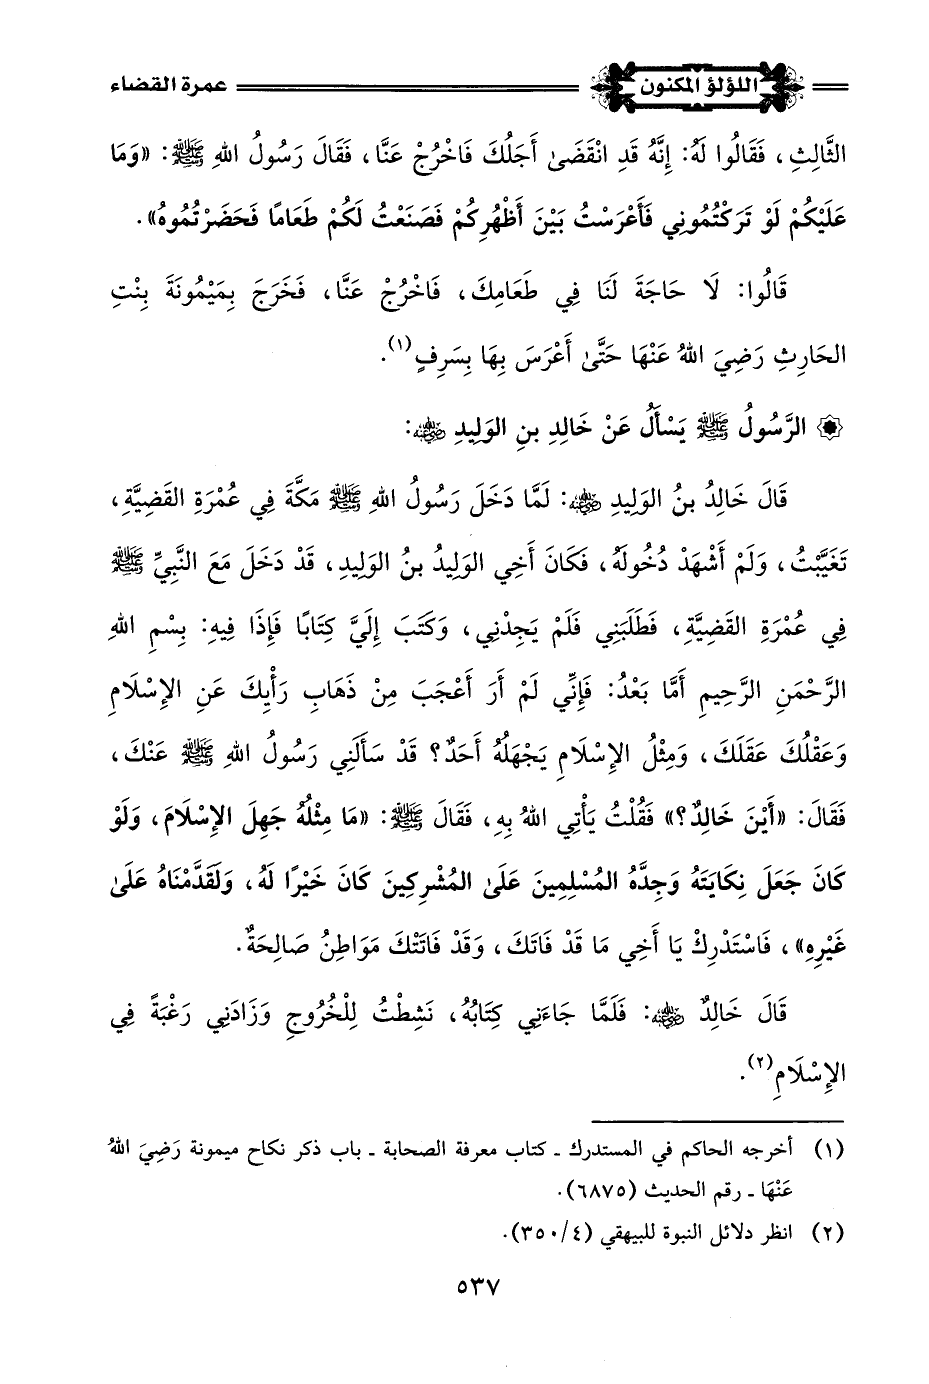 اللؤلؤ المكنون عمرة القضاء
الثَّالِثِ، فَقَالُوا لَهُ: إِنَّهُ قَدِ انْقَضَىٰ أَجَلُكَ فَاخْرُجْ عَنَّا، فَقَالَ رَسُولُ اللهِ ﷺ: «وَمَا
عَلَيْكُمْ لَوْ تَرَكْتُمُونِي فَأَعْرَسْتُ بَيْنَ أَظْهُرِكُمْ فَصَنَعْتُ لَكُمْ طَعَامًا فَحَضَرْتُمُوهُ».
قَالُوا: لَا حَاجَةَ لَنَا فِي طَعَامِكَ، فَاخْرُجْ عَنَّا، فَخَرَجَ بِمَيْمُونَةَ بِنْتِ
الحَارِثِ رَضِيَ اللهُ عَنْهَا حَتَّىٰ أَعْرَسَ بِهَا بِسَرِفٍ(١).
الرَّسُولُ ﷺ يَسْأَلُ عَنْ خَالِدِ بنِ الوَلِيدِ رضي الله عنه:
قَالَ خَالِدُ بنُ الوَلِيدِ رضي الله عنه: لَمَّا دَخَلَ رَسُولُ اللهِ ﷺ مَكَّةَ فِي عُمْرَةِ القَضِيَّةِ،
تَغَيَّبْتُ، وَلَمْ أَشْهَدْ دُخُولَهُ، فَكَانَ أَخِي الوَلِيدُ بنُ الوَلِيدِ، قَدْ دَخَلَ مَعَ النَّبِيِّ ﷺ
فِي عُمْرَةِ القَضِيَّةِ، فَطَلَبَنِي فَلَمْ يَجِدْنِي، وَكَتَبَ إِلَيَّ كِتَابًا فَإِذَا فِيهِ: بِسْمِ اللهِ
الرَّحْمَنِ الرَّحِيمِ أَمَّا بَعْدُ: فَإِنِّي لَمْ أَرَ أَعْجَبَ مِنْ ذَهَابِ رَأْيِكَ عَنِ الإِسْلَامِ
وَعَقْلُكَ عَقَلَكَ، وَمِثْلُ الإِسْلَامِ يَجْهَلُهُ أَحَدٌ؟ قَدْ سَأَلَنِي رَسُولُ اللهِ ﷺ عَنْكَ،
فَقَالَ: «أَيْنَ خَالِدٌ؟» فَقُلْتُ يَأْتِي اللهُ بِهِ، فَقَالَ ﷺ: «مَا مِثْلُهُ جَهِلَ الإِسْلَامَ، وَلَوْ
كَانَ جَعَلَ نِكَايَتَهُ وَجِدَّهُ المُسْلِمِينَ عَلَىٰ المُشْرِكِينَ كَانَ خَيْرًا لَهُ، وَلَقَدَّمْنَاهُ عَلَىٰ
غَيْرِهِ»، فَاسْتَدْرِكْ يَا أَخِي مَا قَدْ فَاتَكَ، وَقَدْ فَاتَتْكَ مَوَاطِنُ صَالِحَةٌ.
قَالَ خَالِدٌ رضي الله عنه: فَلَمَّا جَاءَنِي كِتَابُهُ، نَشِطْتُ لِلْخُرُوجِ وَزَادَنِي رَغْبَةً فِي
الإِسْلَامِ(٢).
(١) أخرجه الحاكم في المستدرك - كتاب معرفة الصحابة - باب ذكر نكاح ميمونة رَضِيَ اللهُ
عَنْهَا - رقم الحديث (٦٨٧٥).
(٢) انظر دلائل النبوة للبيهقي (٤/ ٣٥٠).
٥٣٧